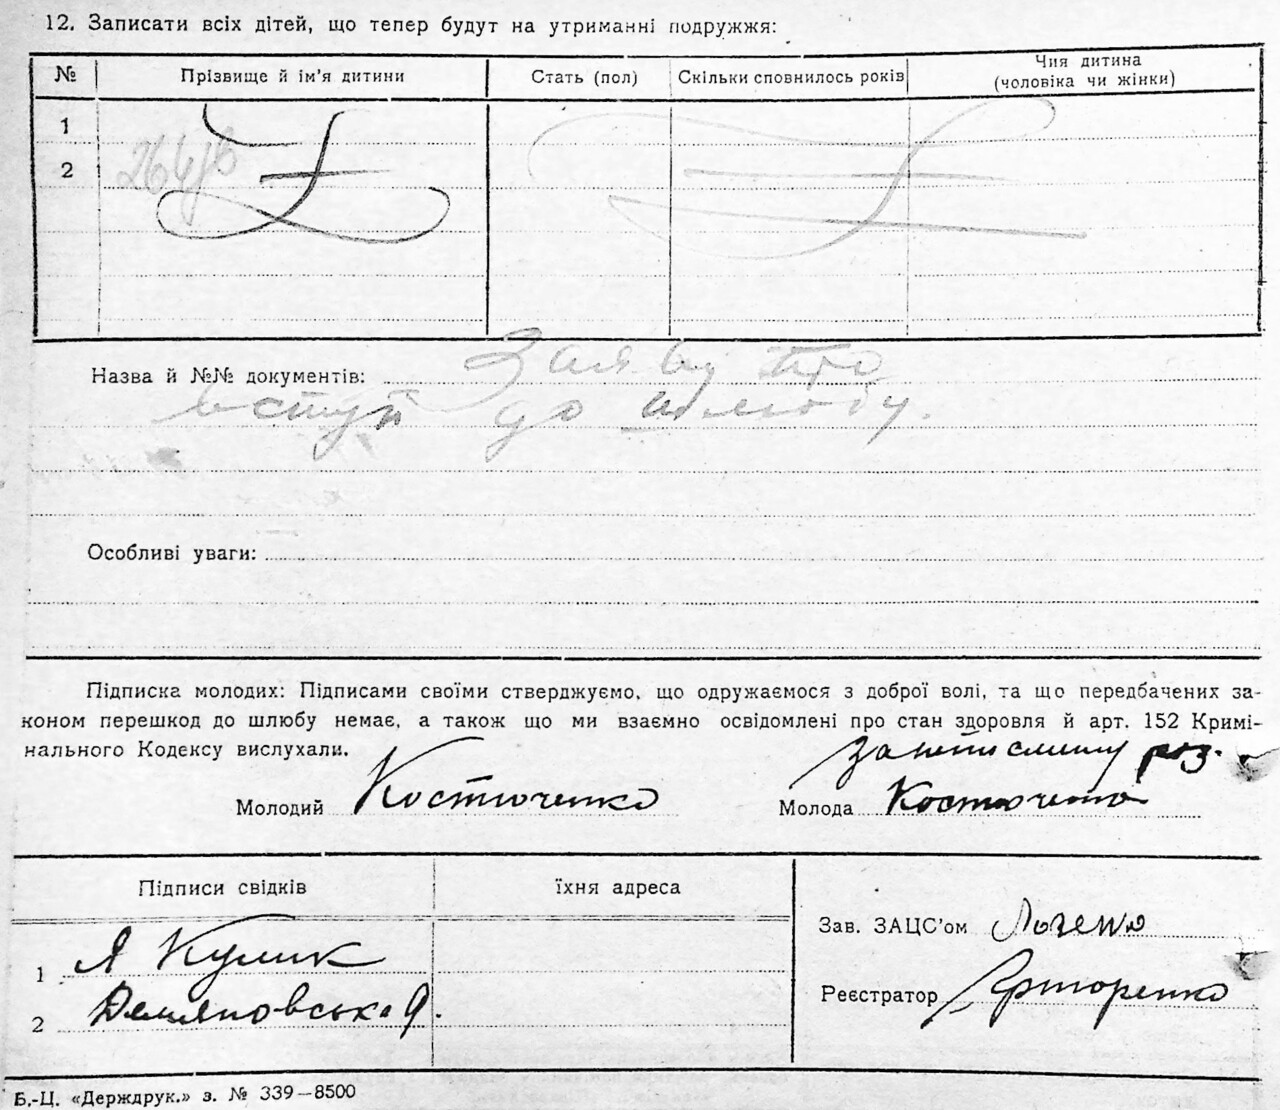 12. Записати всіх дітей, що тепер будут на утриманні подружжя:
№ Прізвище й ім'я дитини Стать (пол) Скільки сповнилось років Чия дитина (чоловіка чи жінки)
1
2
Назва й №№ документів: Заяву про
вступ до шлюбу.
Особливі уваги:
Підписка молодих: Підписами своїми стверджуємо, що одружаємося з доброї волі, та що передбачених за-
коном перешкод до шлюбу немає, а також що ми взаємно освідомлені про стан здоровля й арт. 152 Кримі-
нального Кодексу вислухали.
за неписьменну роз.
Молодий Костюченко Молода Костюченко
Підписи свідків їхня адреса
Зав. ЗАЦС'ом
1 Я Кулик
Реєстратор
2 Демяновська Я.
Б.-Ц. «Держдрук.» з. № 339—8500